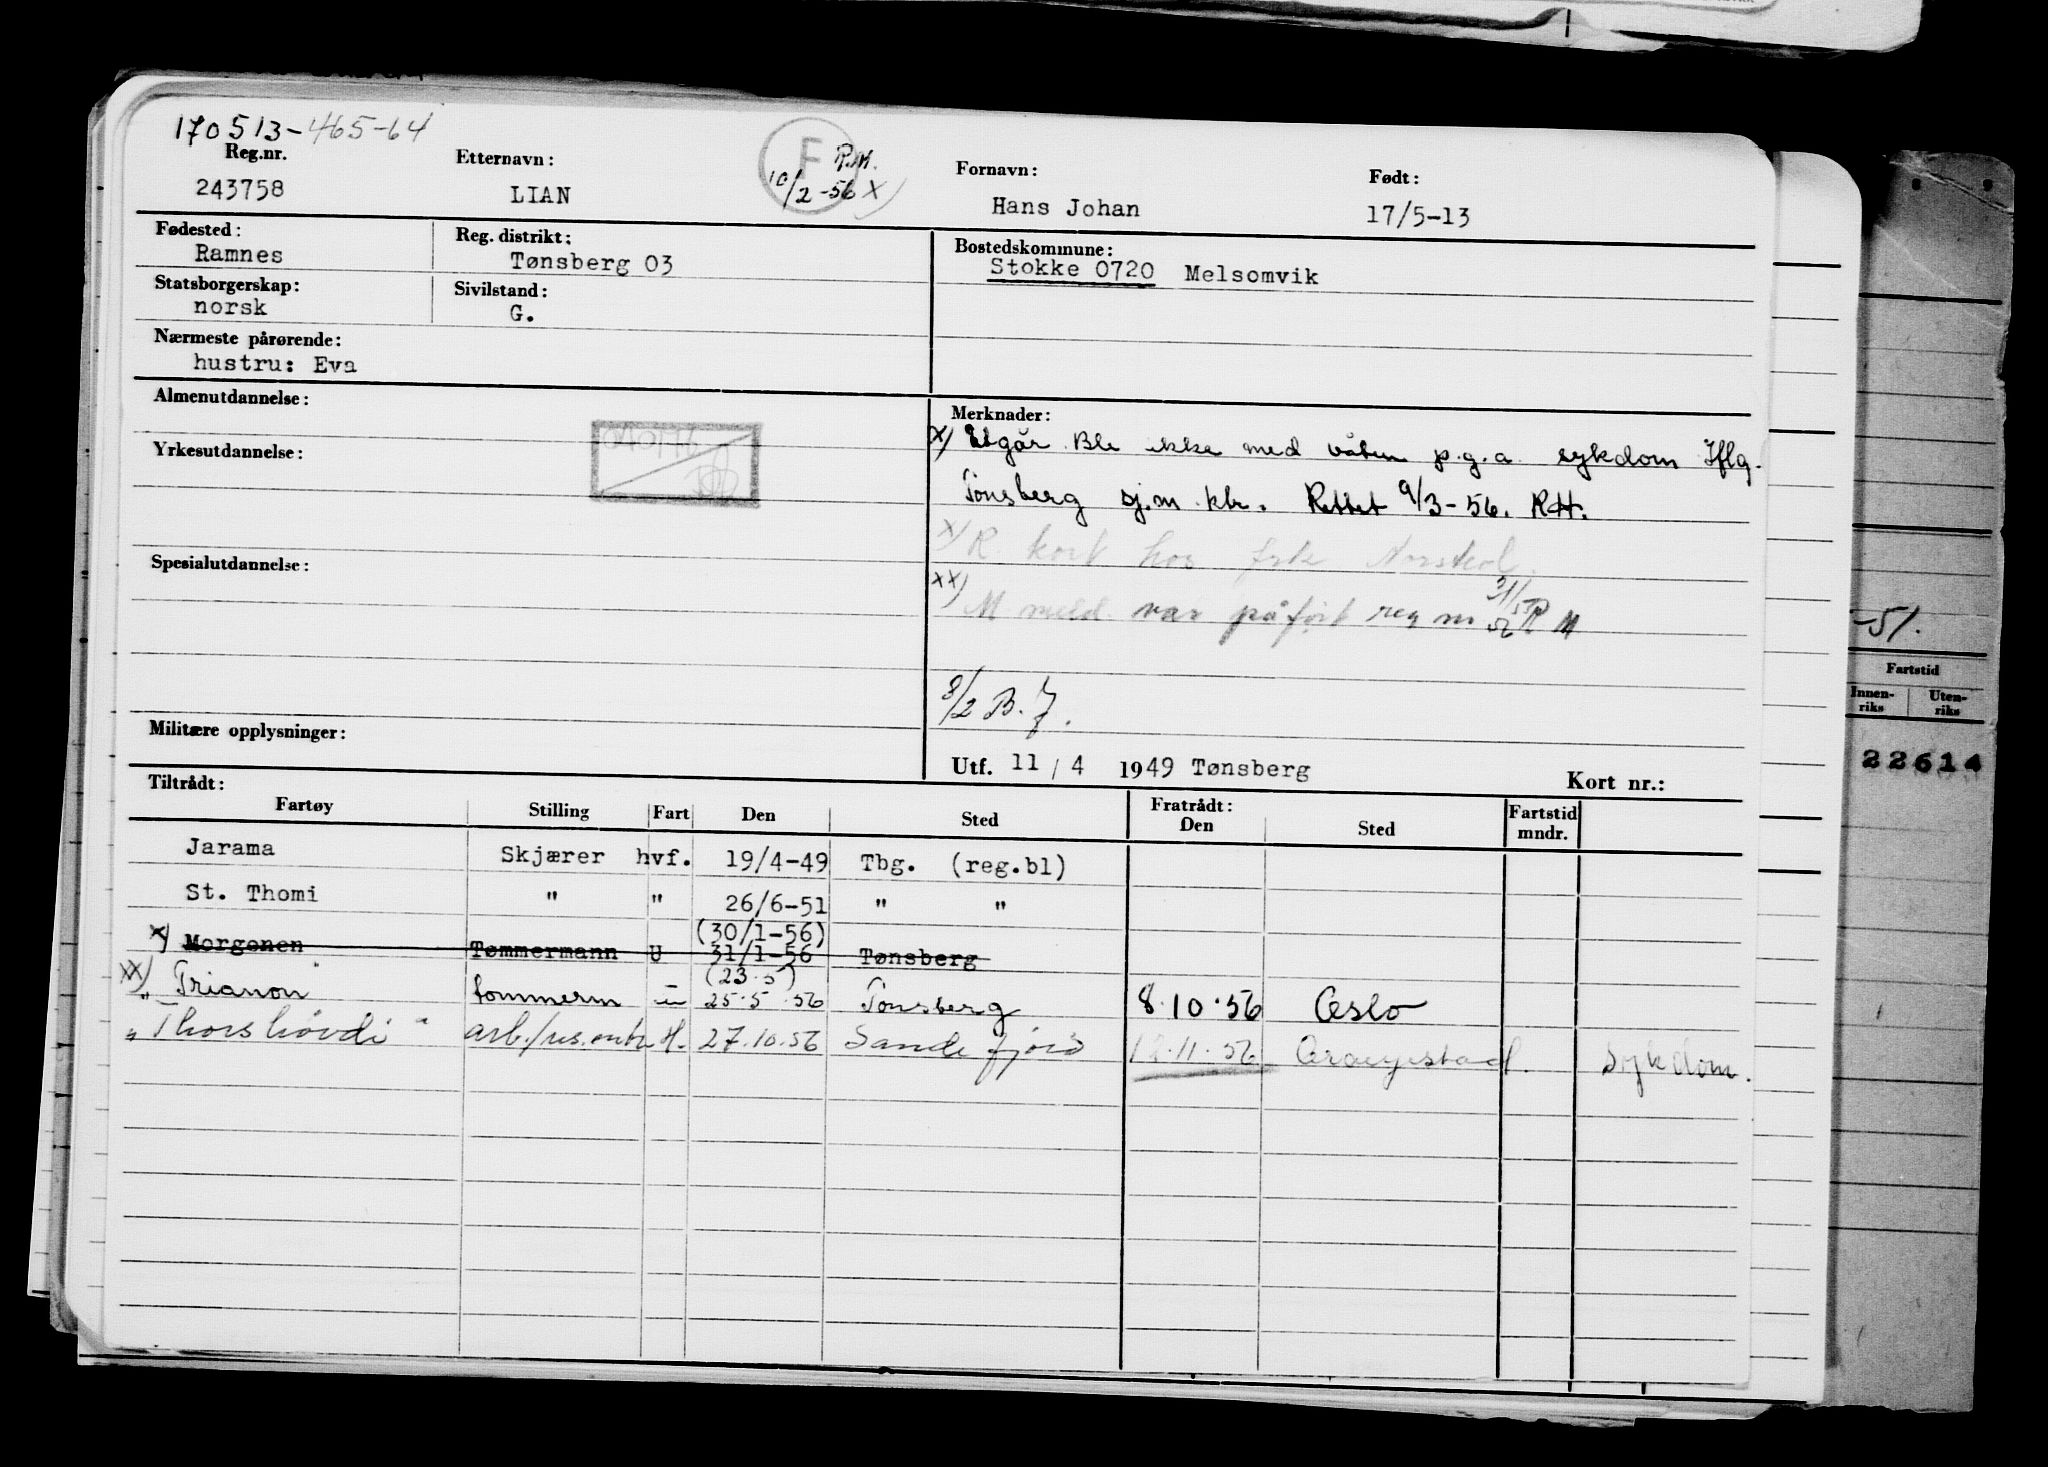 170513-465-64
Reg.nr. Etternavn: Fornavn: Født:
243758 LIAN F R.M. 10/2-56 X) Hans Johan 17/5-13
Fødested: Reg. distrikt: Bostedskommune:
Ramnes Tønsberg 03 Stokke 0720 Melsomvik
Statsborgerskap: Sivilstand:
norsk G.
Nærmeste pårørende:
hustru: Eva
Almenutdannelse: Merknader:
X) Utgår. Ble ikke med båten p.g.a. sykdom Iflg.
Yrkesutdannelse:
Tønsberg sj.m.ktr. Rettet 9/3-56. RH.
X) R. kort hos frk
Spesialutdannelse:
XX) M meld. var påført reg nr
3/2 B.J.
Militære opplysninger:
Utf. 11/4 1949 Tønsberg Kort nr.:
Tiltrådt: Fratrådt:
Fartøy Stilling Fart Den Sted Den Sted Fartstid mndr.
Jarama Skjærer hvf. 19/4-49 Tbg. (reg.bl)
St. Thomi " " 26/6-51 " "
(30/1-56)
X) Morgenen Tømmermann U 31/1-56 Tønsberg
(23.5)
XX) "Trianon" tømmerm u 25.5.56 Tønsberg 8.10.56 Oslo
"Thorshövdi" H. 27.10.56 Sandefjord .11.56 Sykdom.
-51.
Fartstid
Innen- Uten-
riks riks
22614